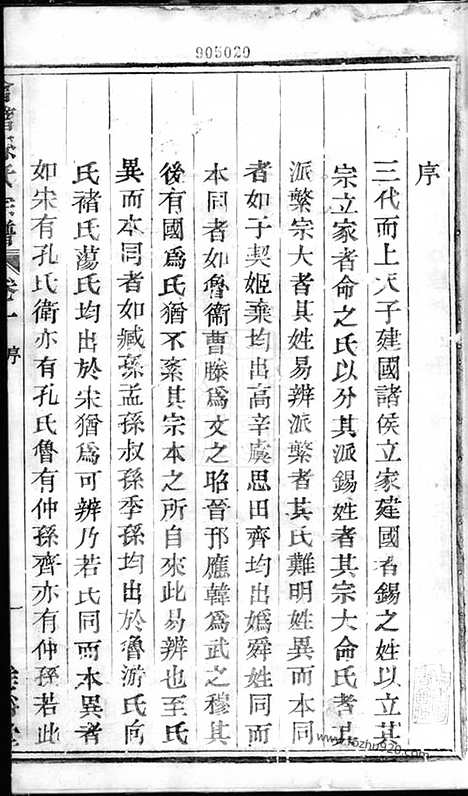 905020
序
三代而上天子建國諸侯立家建國者錫之姓以立其
宗立家者命之氏以分其派錫姓者其宗大命氏者其
派繁宗大者其姓易辨派繁者其氏難明姓異而本同
者如子契姬棄均出高辛虞思田齊均出嬀舜姓同而
本同者如魯衞曹滕爲文之昭晉邘應韓爲武之穆其
後有國爲氏猶不紊其宗本之所自來此易辨也至氏
異而本同者如臧孫孟孫叔孫季孫均出於魯游氏向
氏褚氏蕩氏均出於宋猶爲可辨乃若氏同而本異者
如宋有孔氏衛亦有孔氏魯有仲孫齊亦有仲孫若此
孫氏宗譜
卷一
序
一
www.fozhu920.com